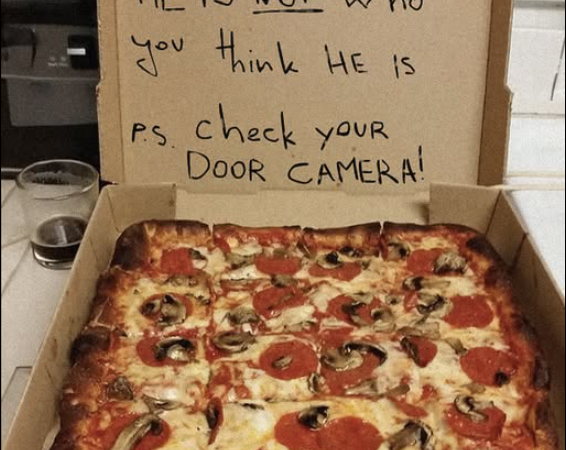 HE IS NOT WHO
you think HE IS
P.S. check YOUR
DOOR CAMERA!